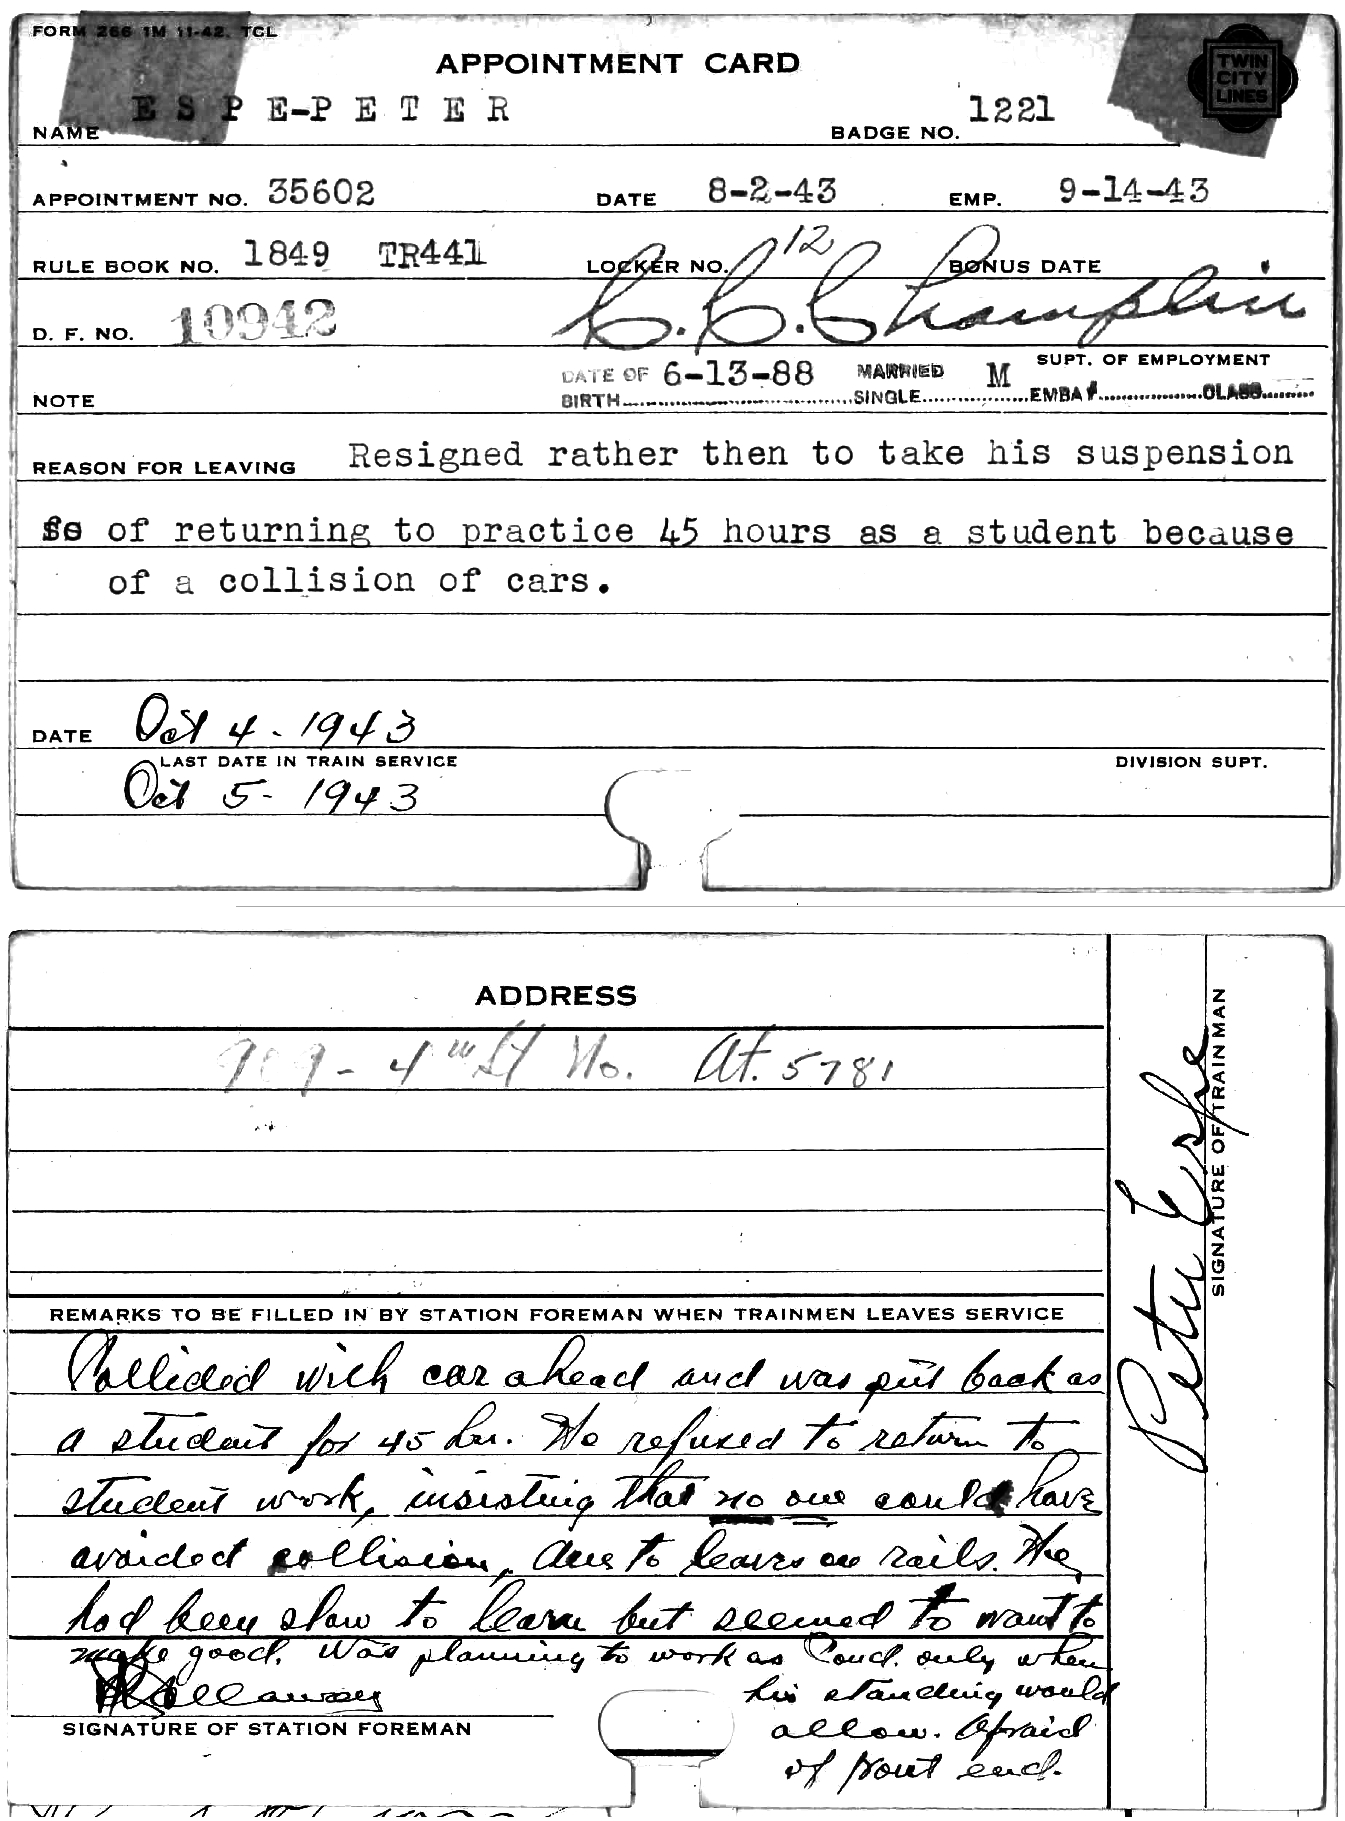 FORM 266 1M 11-42. TCL
TWIN
CITY
LINES
APPOINTMENT CARD
NAME E S P E-P E T E R BADGE NO. 1221
APPOINTMENT NO. 35602 DATE 8-2-43 EMP. 9-14-43
RULE BOOK NO. 1849 TR441 LOCKER NO. 12 BONUS DATE
D. F. NO. 10942 C. C. Champlin
SUPT. OF EMPLOYMENT
NOTE DATE OF BIRTH 6-13-88 MARRIED SINGLE M EMBA CLASS
REASON FOR LEAVING Resigned rather then to take his suspension
of returning to practice 45 hours as a student because
of a collision of cars.
DATE Oct 4 - 1943
LAST DATE IN TRAIN SERVICE DIVISION SUPT.
Oct 5 - 1943
ADDRESS
- 4th St No. At. 5781
REMARKS TO BE FILLED IN BY STATION FOREMAN WHEN TRAINMEN LEAVES SERVICE
Collided with car ahead and was put back as
a student for 45 hrs. He refused to return to
student work, insisting that no one could have
avoided collision, due to leaves on rails. He
had been slow to learn but seemed to want to
make good. Was planning to work as Cond. only when
his standing would
allow. Afraid
of front end.
SIGNATURE OF STATION FOREMAN
Peter Espe
SIGNATURE OF TRAIN MAN